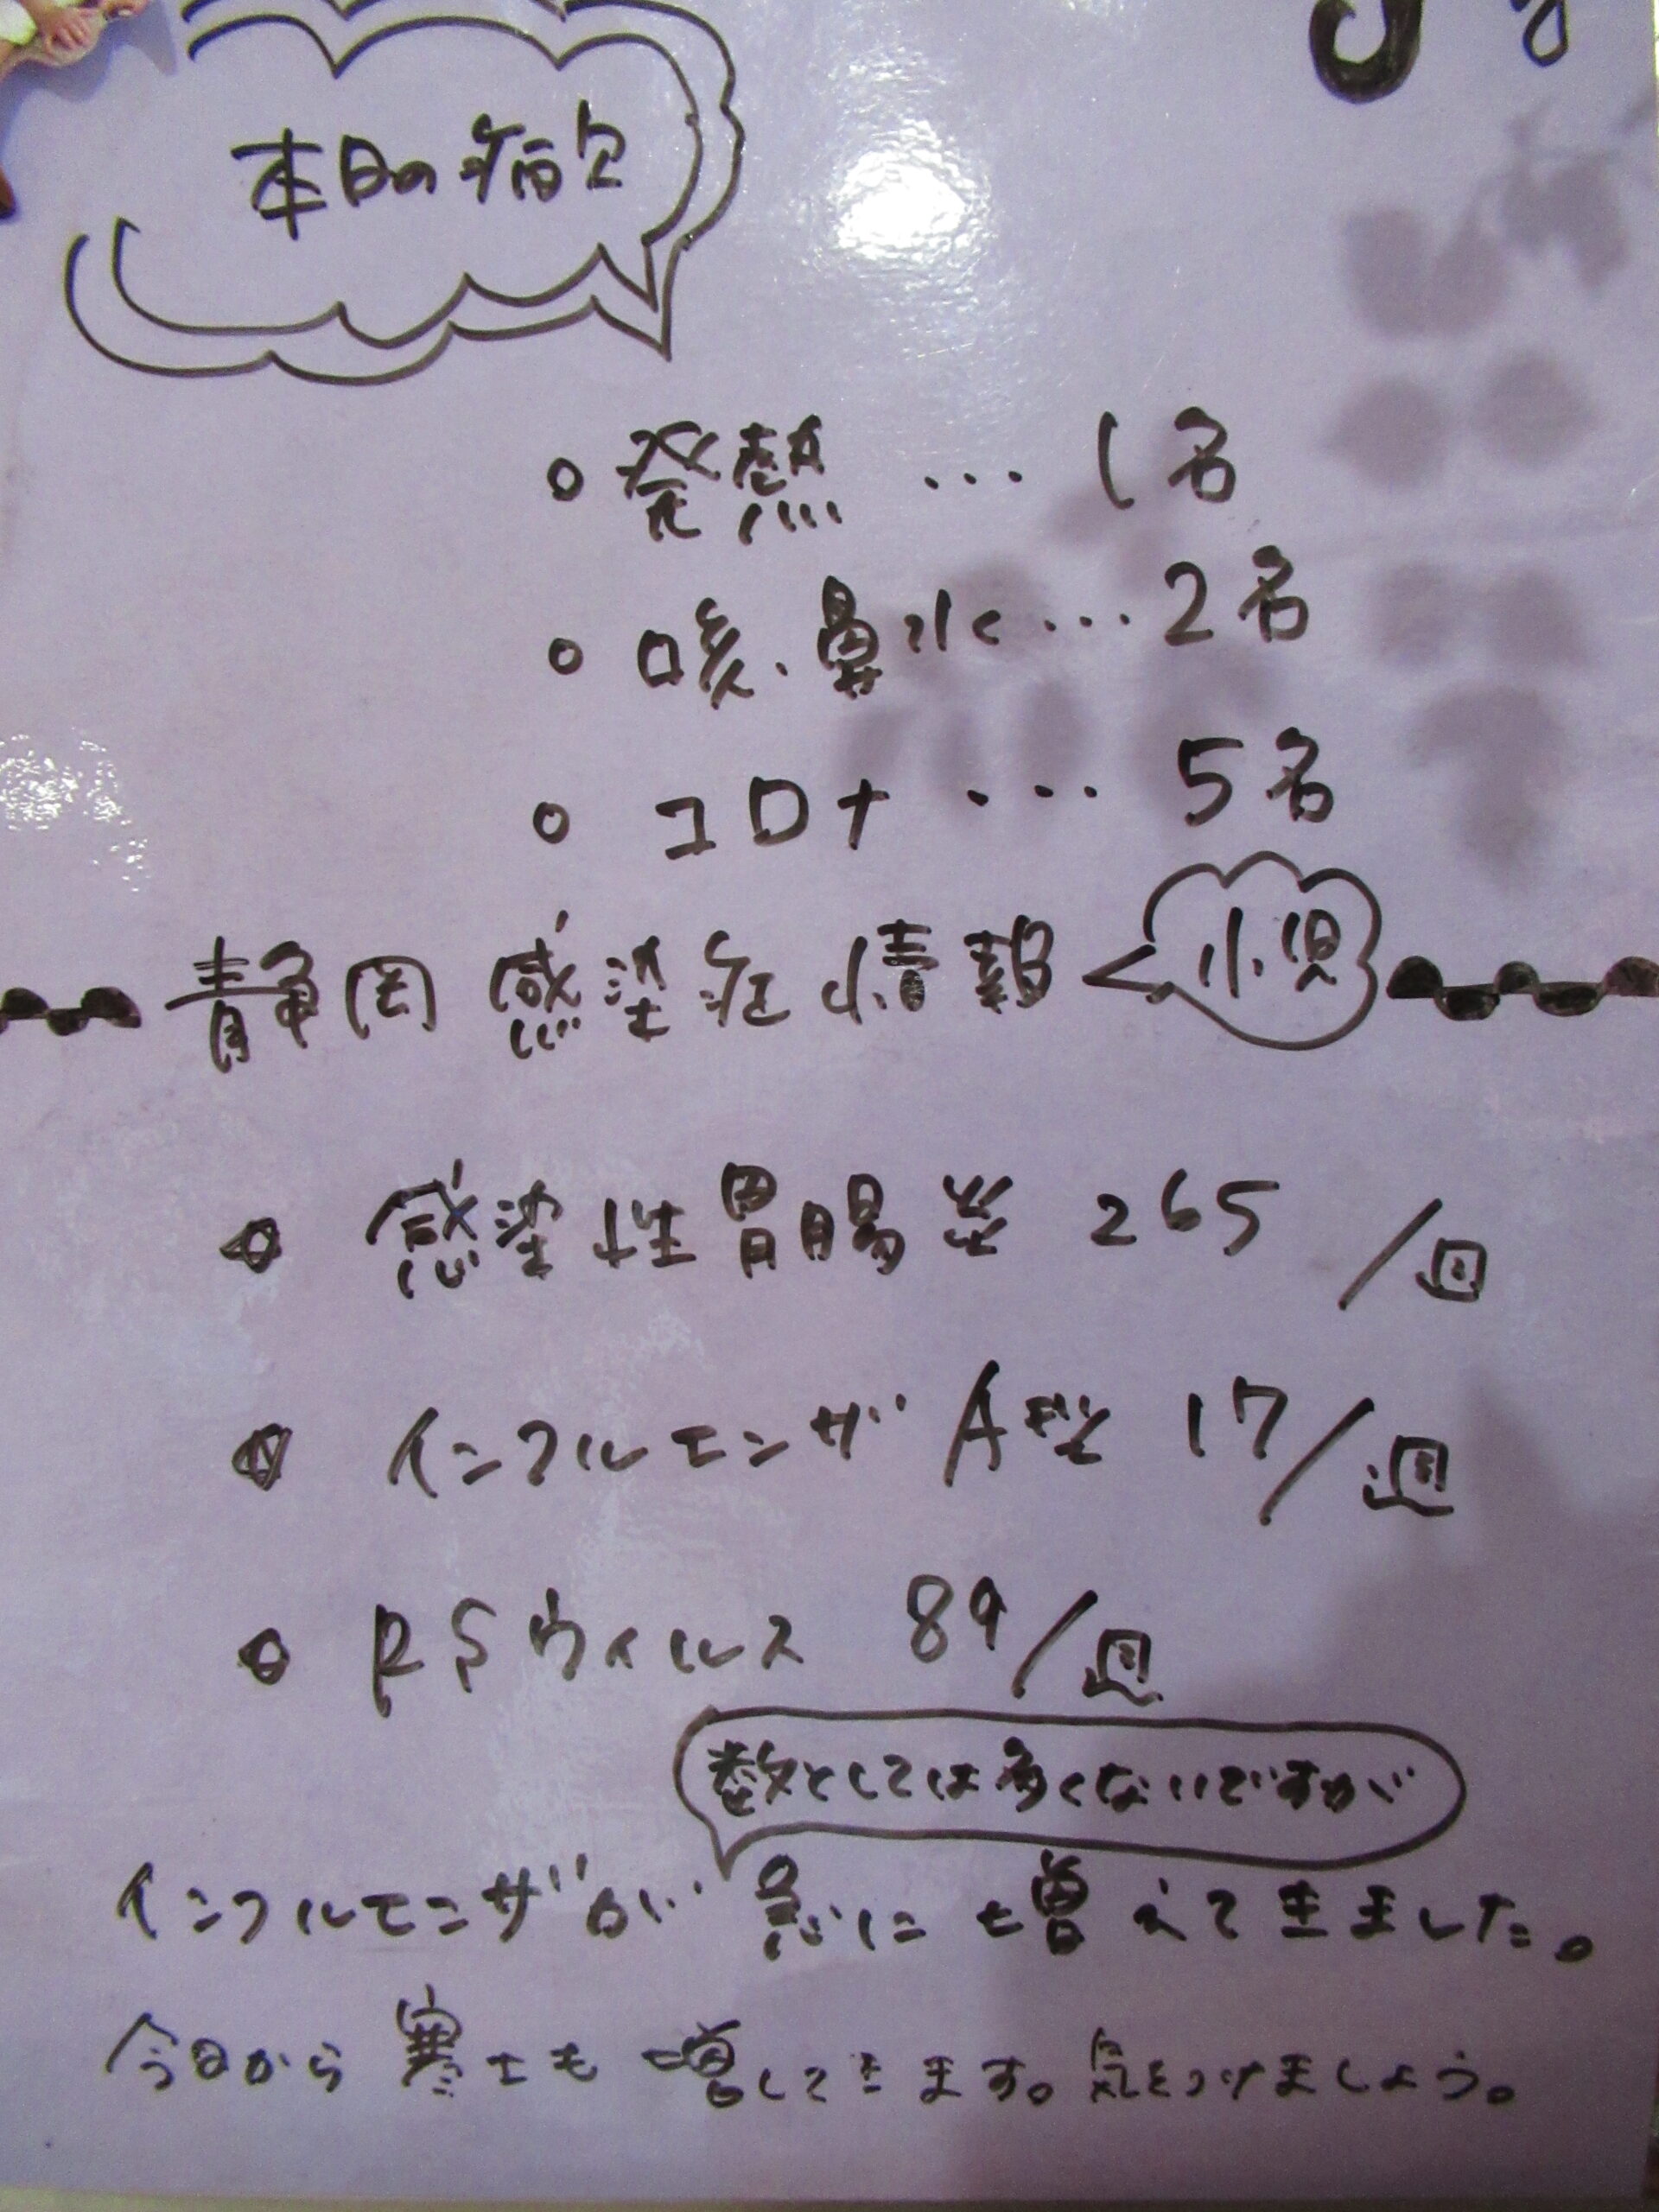 本日の病欠
○ 発熱 … 1名
○ 咳、鼻水 … 2名
○ コロナ … 5名
静岡 感染症 情報 小児
感染性胃腸炎 265 /週
インフルエンザ A型 17/週
RSウィルス 89/週
数としては多くないですが
インフルエンザが 急に 増えて きました。
今日から 寒さも 増してきます。気をつけましょう。